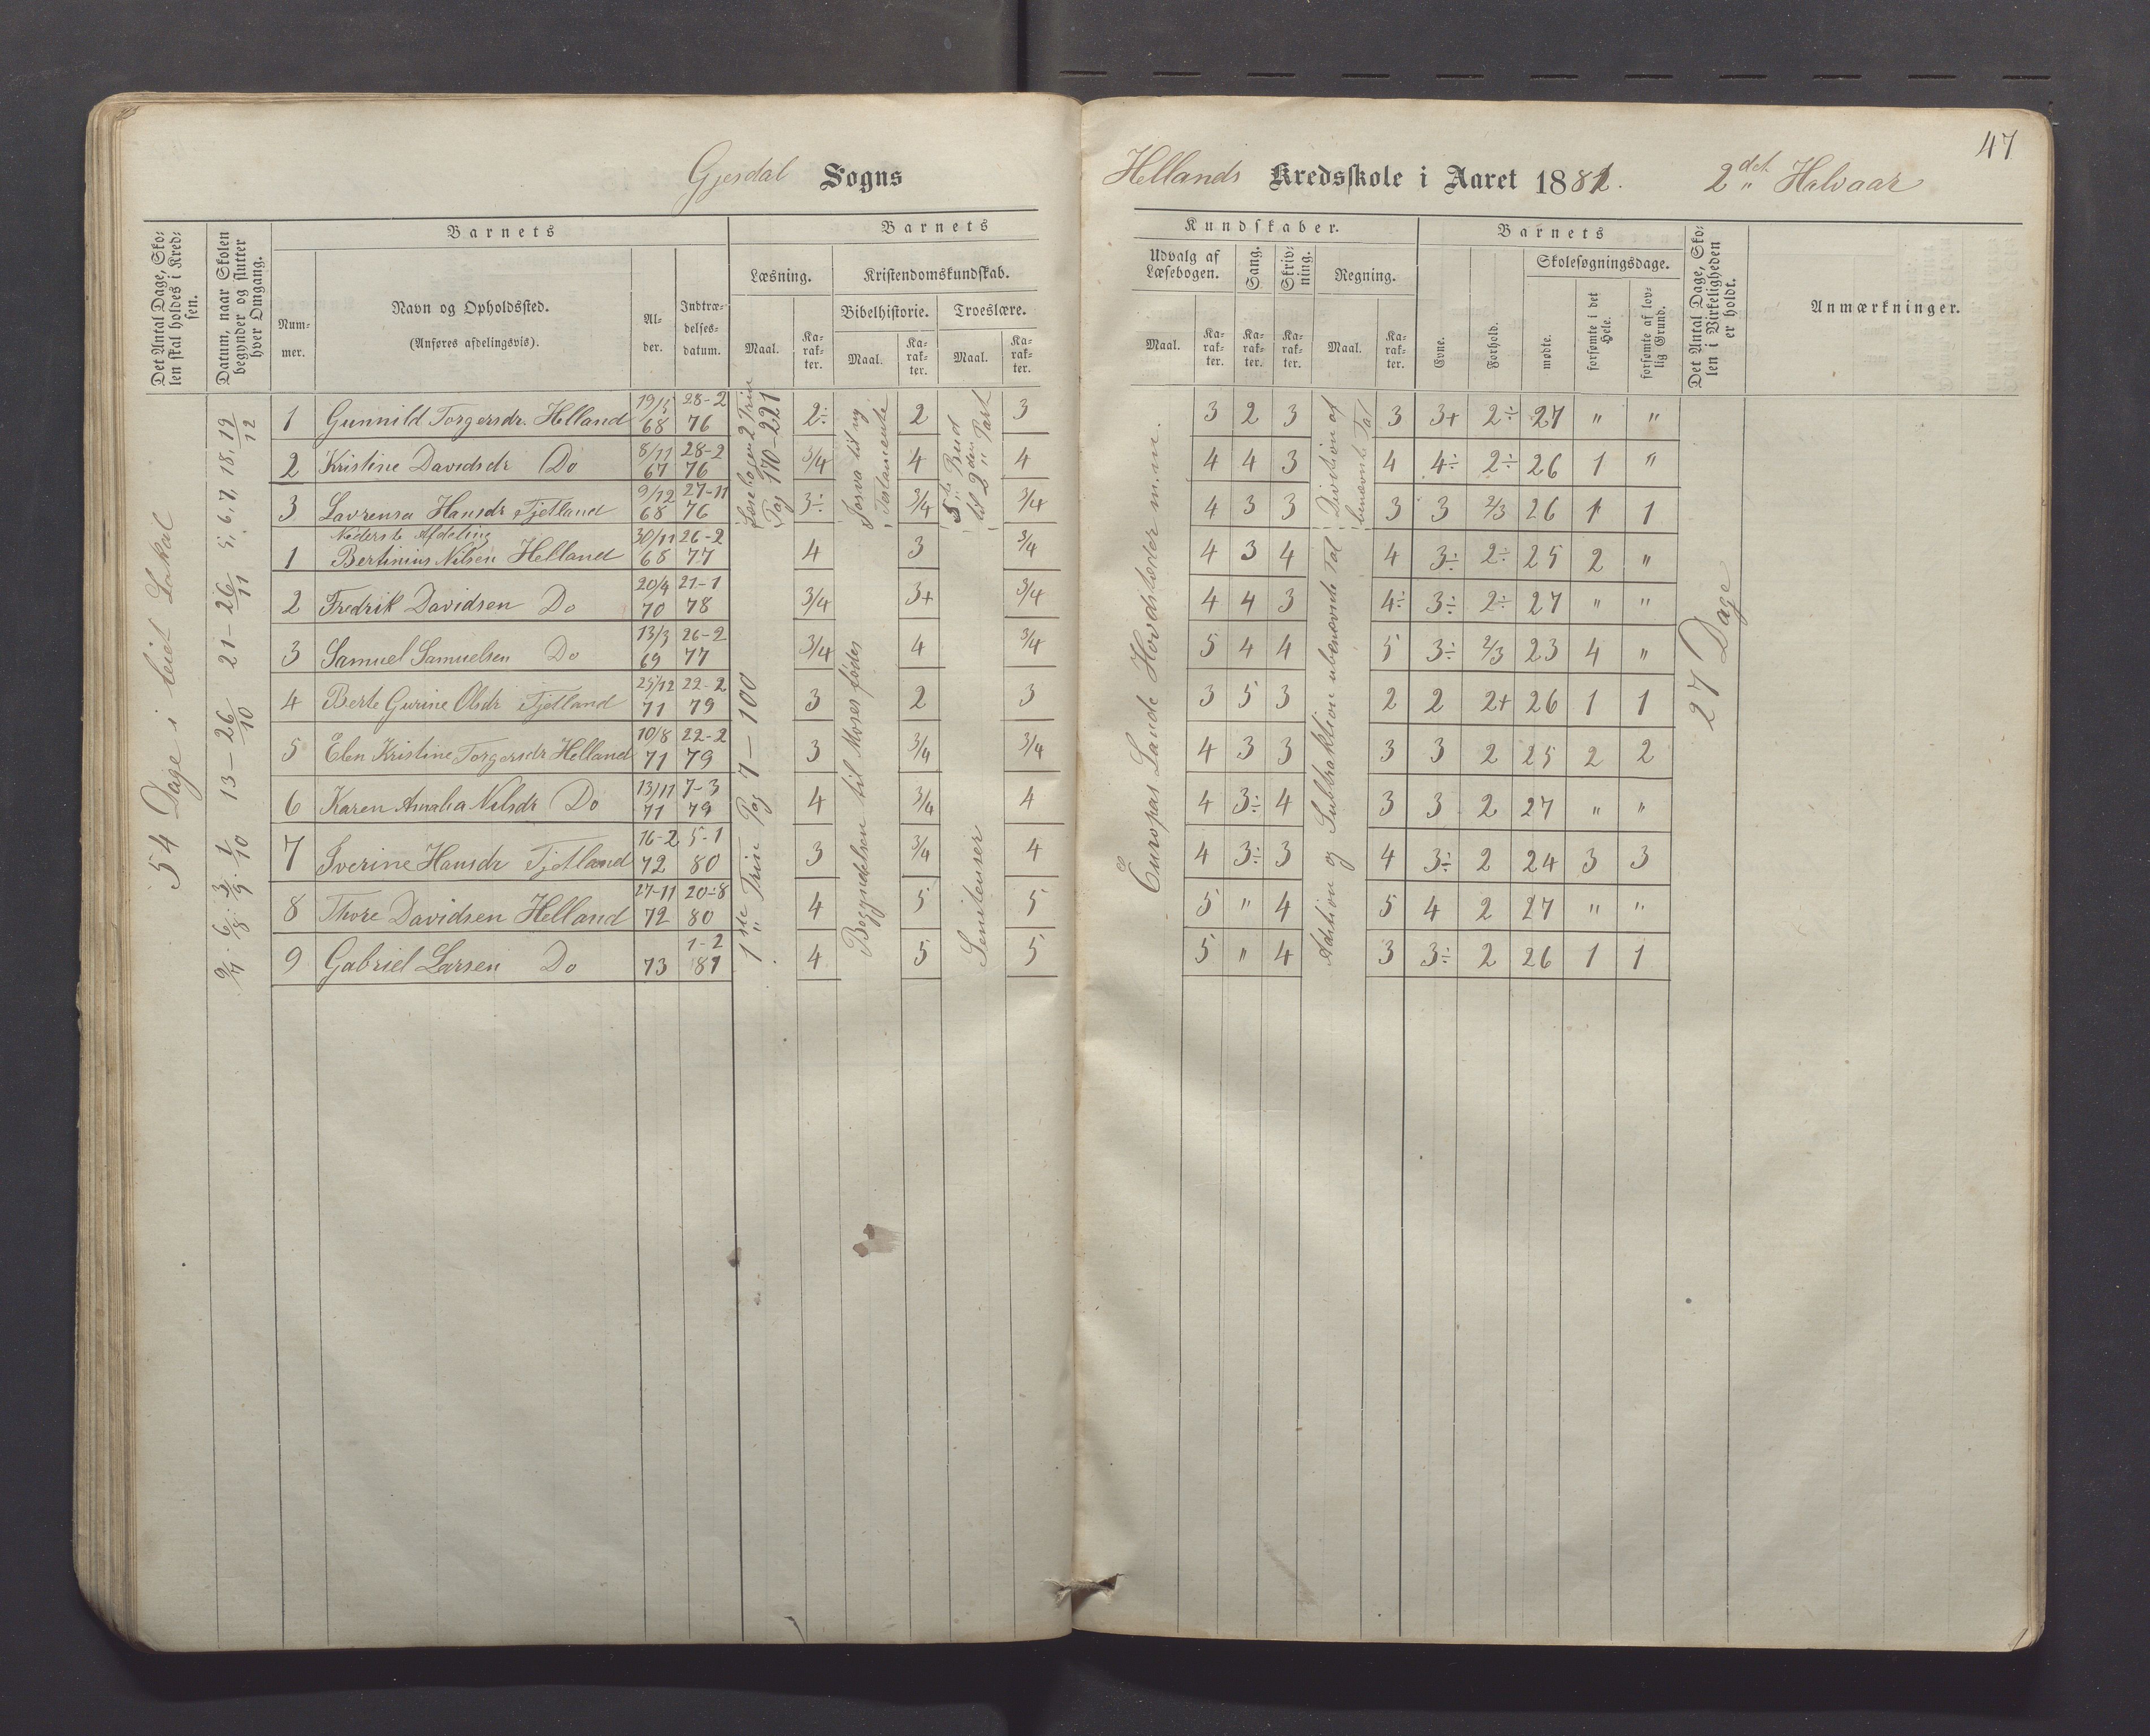 47
Gjesdal Sogns Hellands Kredsskole i Aaret 1881. 2det Halvaar
Det Antal Dage, Sko-
len skal holdes i Kred-
sen.
Datum, naar Skolen
begynder og slutter
hver Omgang.
Barnets
Num-
mer.
Navn og Opholdssted.
(Anføres afdelingsvis).
Al-
der.
Indtræ-
delses-
datum.
Barnets
Læsning.
Maal.
Ka-
rak-
ter.
Kristendomskundskab.
Bibelhistorie.
Maal.
Ka-
rak-
ter.
Troeslære.
Maal.
Ka-
rak-
ter.
Kundskaber.
Udvalg af
Læsebogen.
Maal.
Ka-
rak-
ter.
Sang.
Ka-
rak-
ter.
Skriv-
ning.
Ka-
rak-
ter.
Regning.
Maal.
Ka-
rak-
ter.
Barnets
Evne.
Forhold.
Skolesøgningsdage.
mødte.
forsømte i det
Hele.
forsømte af lov-
lig Grund.
Det Antal Dage, Sko-
len i Virkeligheden
er holdt.
Anmærkninger.
54 Dage i leiet Lokal
6/8 3/9 1/10 13 – 26/10 21 – 26/11 5, 6, 7, 18, 19/12
Læsebogen 2 Trin
Pag 170–221
1ste Trin Pag 7 – 100
Josva til ny
Testamente
Begyndelsen til Moses fødes
5te Bud
til 2den Part
Sentenser
Europas Lande Hovdstæder m.m.
Division af
benævnte Tal
Adition og Subtraktion ubenævnte Tal
27 Dage
1 Gunnild Torgersdr. Helland 19/5 68 28-2 76 2÷ 2 3 3 2 3 3 3+ 2÷ 27 " "
2 Kristine Davidsdr Do 8/11 67 28-2 76 3/4 4 4 4 4 3 4 4÷ 2÷ 26 1 "
3 Lavrensa Hansdr Tjetland 9/12 68 27-11 76 3÷ 3/4 3/4 4 3 3 3 3 2/3 26 1 1
Nederste Afdeling
1 Bertinius Nilsen Helland 30/11 68 26-2 77 4 3 3/4 4 3 4 4 3÷ 2÷ 25 2 "
2 Fredrik Davidsen Do 20/4 70 21-1 78 3/4 3+ 3/4 4 4 3 4÷ 3÷ 2÷ 27 " "
3 Samuel Samuelsen Do 13/3 69 26-2 77 3/4 4 3/4 5 4 4 5 3÷ 2/3 23 4 "
4 Berte Gurine Olsdr Tjetland 25/12 71 22-2 79 3 2 3 3 5 3 2 2 2+ 26 1 1
5 Elen Kristine Torgersdr Helland 10/8 71 22-2 79 3 3/4 3/4 4 3 3 3 3 2 25 2 2
6 Karen Amalia Nilsdr Do 13/11 71 7-3 79 4 3/4 4 4 3÷ 4 3 3 2 27 " "
7 Sverine Hansdr Tjetland 16-2 72 5-1 80 3 3/4 4 4 3÷ 3 4 3÷ 2 24 3 3
8 Thore Davidsen Helland 27-11 72 20-8 80 4 5 5 5 " 4 5 4 2 27 " "
9 Gabriel Larsen Do 73 1-2 81 4 5 5 5 " 4 3 3÷ 2 26 1 1